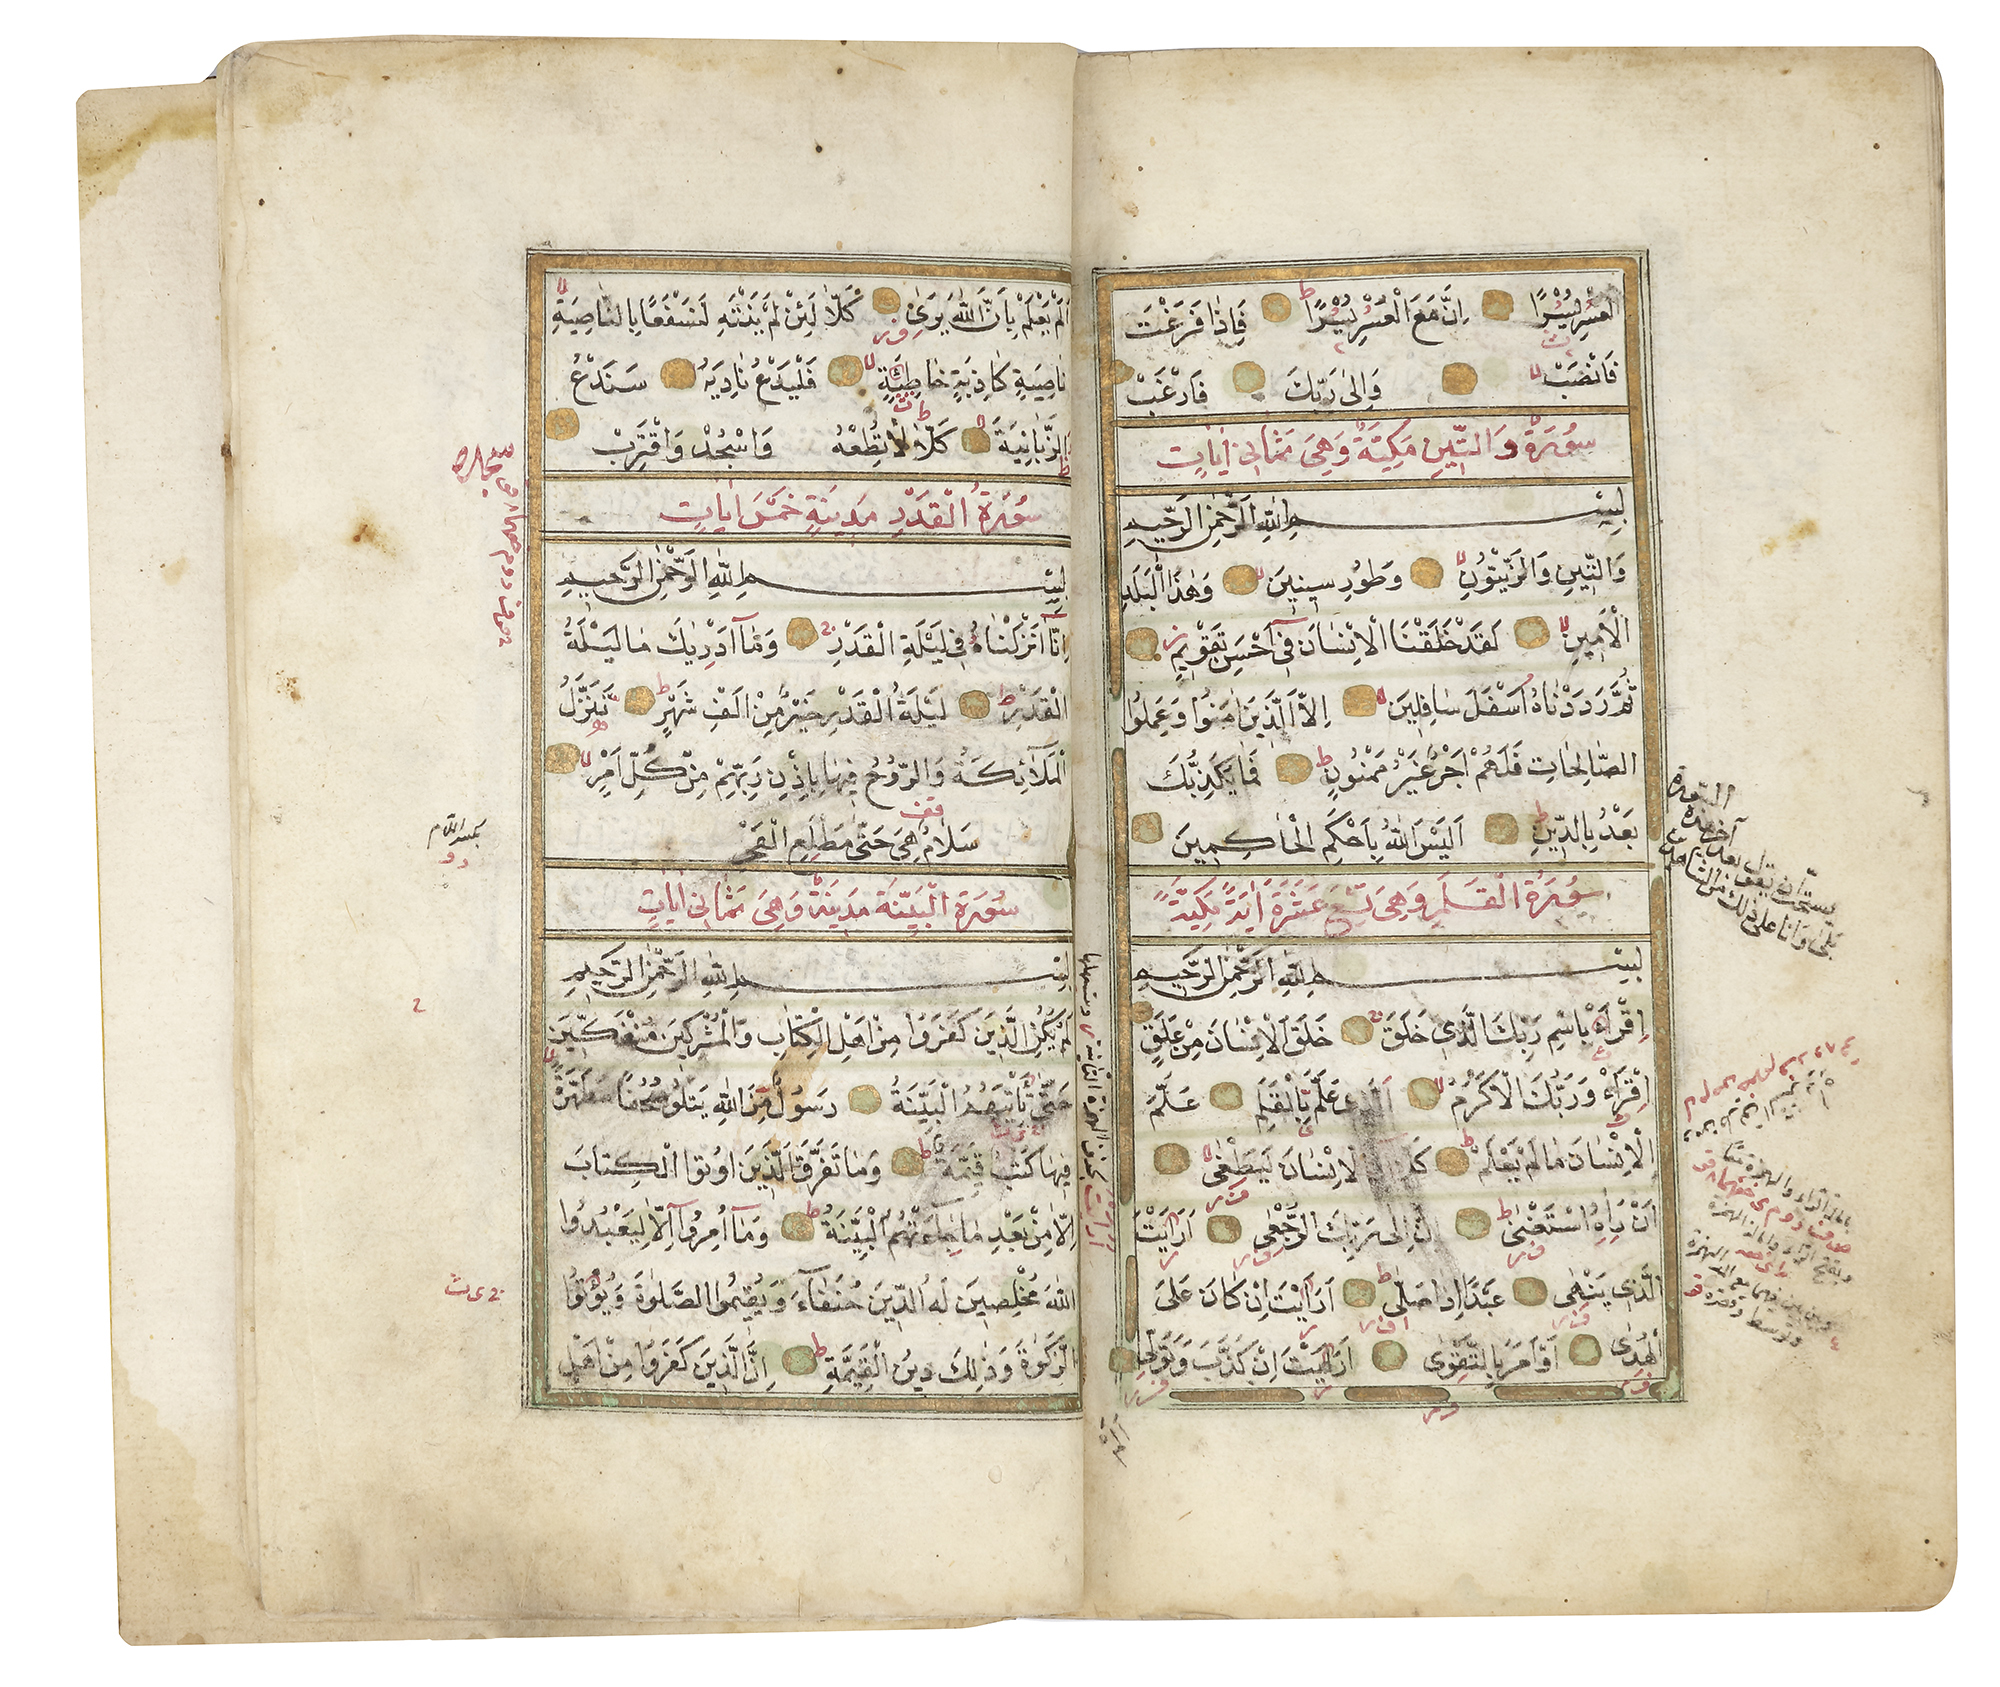 الْعُسْرِ يُسْرًا اِنَّ مَعَ الْعُسْرِ يُسْرًا فَاِذَا فَرَغْتَ
فَانْصَبْ وَاِلٰى رَبِّكَ فَارْغَبْ
سُورَةُ وَالتِّينِ مَكِيَّةٌ وَهِىَ ثَمَانِى اٰيَاتٍ
بِسْمِ اللّٰهِ الرَّحْمٰنِ الرَّحِيمِ
وَالتِّينِ وَالزَّيْتُونِ وَطُورِ سِينِينَ وَهٰذَا الْبَلَدِ
الْاَمِينِ لَقَدْ خَلَقْنَا الْاِنْسَانَ فِى اَحْسَنِ تَقْوِيمٍ
ثُمَّ رَدَدْنَاهُ اَسْفَلَ سَافِلِينَ اِلَّا الَّذِينَ اٰمَنُوا وَعَمِلُوا
الصَّالِحَاتِ فَلَهُمْ اَجْرٌ غَيْرُ مَمْنُونٍ فَمَا يُكَذِّبُكَ
بَعْدُ بِالدِّينِ اَلَيْسَ اللّٰهُ بِاَحْكَمِ الْحَاكِمِينَ
سُورَةُ الْقَلَمِ وَهِىَ تِسْعَ عَشْرَةَ اٰيَةً مَكِيَّةً
بِسْمِ اللّٰهِ الرَّحْمٰنِ الرَّحِيمِ
اِقْرَاْ بِاسْمِ رَبِّكَ الَّذِى خَلَقَ خَلَقَ الْاِنْسَانَ مِنْ عَلَقٍ
اِقْرَاْ وَرَبُّكَ الْاَكْرَمُ اَلَّذِى عَلَّمَ بِالْقَلَمِ عَلَّمَ
الْاِنْسَانَ مَا لَمْ يَعْلَمْ كَلَّا اِنَّ الْاِنْسَانَ لَيَطْغٰى
اَنْ رَاٰهُ اسْتَغْنٰى اِنَّ اِلٰى رَبِّكَ الرُّجْعٰى اَرَاَيْتَ
الَّذِى يَنْهٰى عَبْدًا اِذَا صَلّٰى اَرَاَيْتَ اِنْ كَانَ عَلَى
الْهُدٰى اَوْ اَمَرَ بِالتَّقْوٰى اَرَاَيْتَ اِنْ كَذَّبَ وَتَوَلّٰى
اَلَمْ يَعْلَمْ بِاَنَّ اللّٰهَ يَرٰى كَلَّا لَئِنْ لَمْ يَنْتَهِ لَنَسْفَعًا بِالنَّاصِيَةِ
نَاصِيَةٍ كَاذِبَةٍ خَاطِئَةٍ فَلْيَدْعُ نَادِيَهُ سَنَدْعُ
الزَّبَانِيَةَ كَلَّا لَا تُطِعْهُ وَاسْجُدْ وَاقْتَرِبْ
سُورَةُ الْقَدْرِ مَدِينَةٌ خَمْسُ اٰيَاتٍ
بِسْمِ اللّٰهِ الرَّحْمٰنِ الرَّحِيمِ
اِنَّا اَنْزَلْنَاهُ فِى لَيْلَةِ الْقَدْرِ وَمَا اَدْرٰيكَ مَا لَيْلَةُ
الْقَدْرِ لَيْلَةُ الْقَدْرِ خَيْرٌ مِنْ اَلْفِ شَهْرٍ تَنَزَّلُ
الْمَلَائِكَةُ وَالرُّوحُ فِيهَا بِاِذْنِ رَبِّهِمْ مِنْ كُلِّ اَمْرٍ
سَلَامٌ هِىَ حَتّٰى مَطْلَعِ الْفَجْرِ
سُورَةُ الْبَيِّنَة مَدِينَةٌ وَهِىَ ثَمَانِى اٰيَاتٍ
بِسْمِ اللّٰهِ الرَّحْمٰنِ الرَّحِيمِ
لَمْ يَكُنِ الَّذِينَ كَفَرُوا مِنْ اَهْلِ الْكِتَابِ وَالْمُشْرِكِينَ مُنْفَكِّينَ
حَتّٰى تَاْتِيَهُمُ الْبَيِّنَةُ رَسُولٌ مِنَ اللّٰهِ يَتْلُو صُحُفًا مُطَهَّرَةً
فِيهَا كُتُبٌ قَيِّمَةٌ وَمَا تَفَرَّقَ الَّذِينَ اُوتُوا الْكِتَابَ
اِلَّا مِنْ بَعْدِ مَا جَاءَتْهُمُ الْبَيِّنَةُ وَمَا اُمِرُوا اِلَّا لِيَعْبُدُوا
اللّٰهَ مُخْلِصِينَ لَهُ الدِّينَ حُنَفَاءَ وَيُقِيمُوا الصَّلٰوةَ وَيُؤْتُوا
الزَّكٰوةَ وَذٰلِكَ دِينُ الْقَيِّمَةِ اِنَّ الَّذِينَ كَفَرُوا مِنْ اَهْلِ